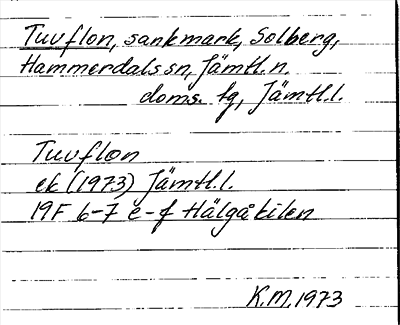 Tuvflon, sankmark, Solberg,
Hammerdals sn, Jämtl. n.
doms. tg, Jämtl. l.
Tuvflon
ek (1973) Jämtl. l.
19F 6-7 e-f Hälgåkilen
K.M. 1973